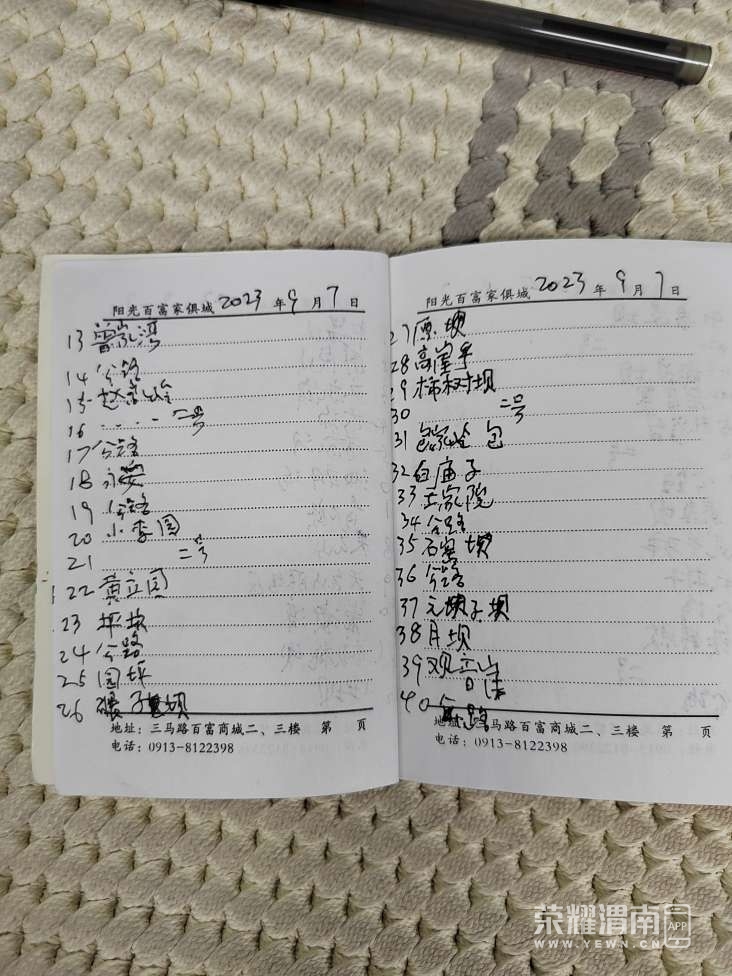 阳光百富家俱城 2023年9月7日
13 曾家湾
14 分路
15 赵家
16 ．．．． 二号
17 分路
18 永安
19 分路
20 小李园
21 二号
22 黄立园
23 坪坝
24 分路
25 园坪
26 子坝
地址：三马路百富商城二、三楼 第 页
电话：0913-8122398
阳光百富家俱城 2023年9月7日
27 坝
28 高崖子
29 柿树坝
30 二号
31 包家 包
32 白庙子
33 王家院
34 分路
35 石窝坝
36 分路
37 元坝子坝
38 月坝
39 观音
40 路
地址：三马路百富商城二、三楼 第 页
电话：0913-8122398
荣耀渭南 APP
WWW.YEWN.CN